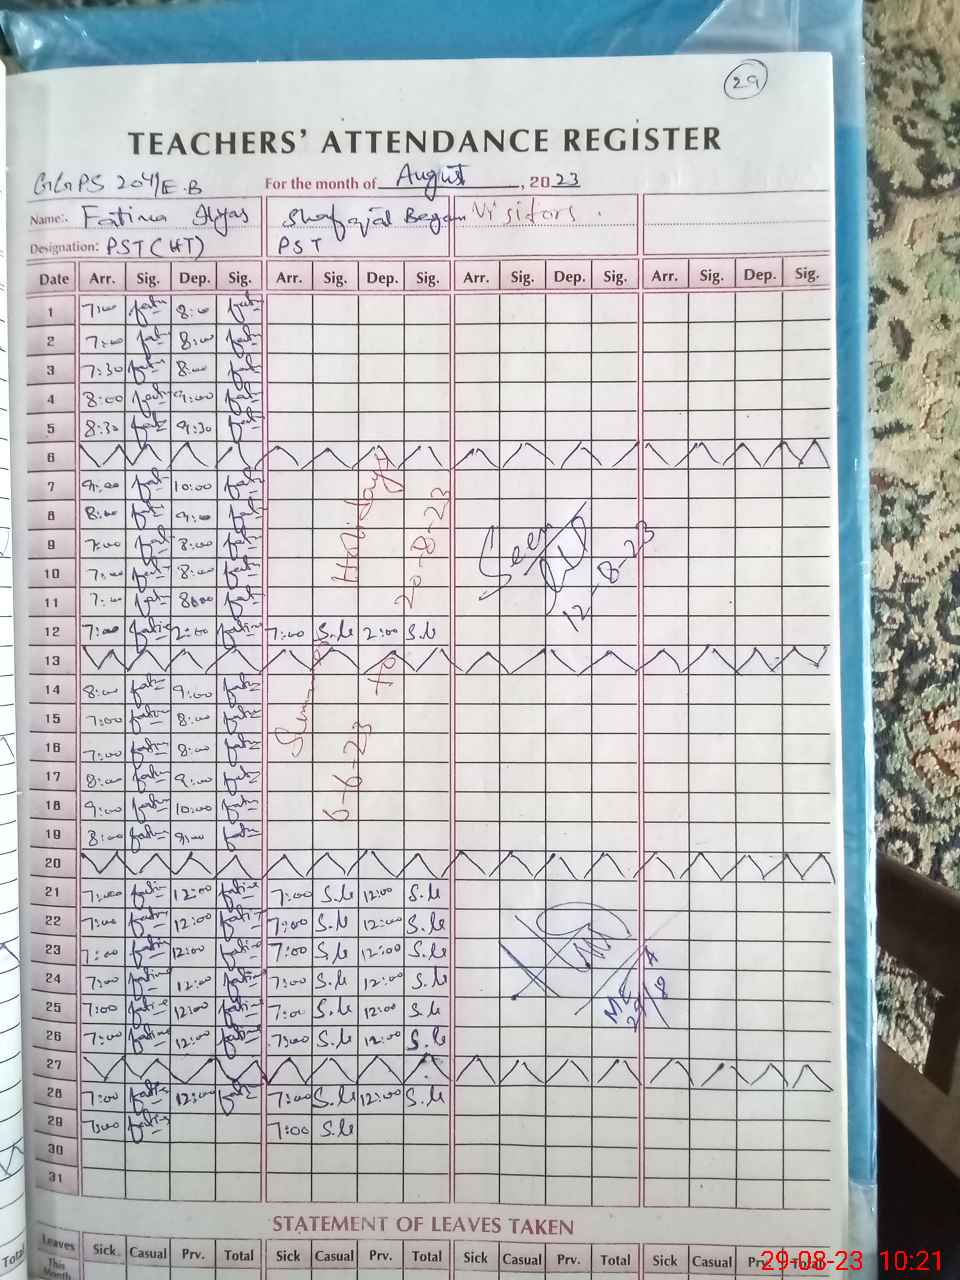 29
TEACHERS' ATTENDANCE REGISTER
GGPS 204/E.B For the month of August, 2023
Name: Fatima Ilyas Shafqat Begam Visitors.
Designation: PST (HT) PST
Date Arr. Sig. Dep. Sig. Arr. Sig. Dep. Sig. Arr. Sig. Dep. Sig. Arr. Sig. Dep. Sig.
1 7:00 8:00
2 7:00 8:00
3 7:30 8:00
4 8:00 9:00
5 8:30 9:30
6
7 9:00 10:00
8 8:00 9:00
9 7:00 8:00
10 7:00 8:00
11 7:00 8:00
12 7:00 2:00 7:00 S.b 2:00 S.b
13
14 8:00 9:00
15 7:00 8:00
16 7:00 8:00
17 8:00 9:00
18 9:00 10:00
19 8:00 9:00
20
21 7:00 12:00 7:00 S.b 12:00 S.b
22 7:00 12:00 7:00 S.b 12:00 S.b
23 7:00 12:00 7:00 S.b 12:00 S.b
24 7:00 12:00 7:00 S.b 12:00 S.b
25 7:00 12:00 7:00 S.b 12:00 S.b
26 7:00 12:00 7:00 S.b 12:00 S.b
27
28 7:00 12:00 7:00 S.b 12:00 S.b
29 7:00 7:00 S.b
30
31
Summer Holidays
6-6-23 to 20-8-23
Seen
12-8-23
STATEMENT OF LEAVES TAKEN
Leaves Sick Casual Prv. Total Sick Casual Prv. Total Sick Casual Prv. Total Sick Casual Prv. Total
This
Month
Total
29-08-23 10:21